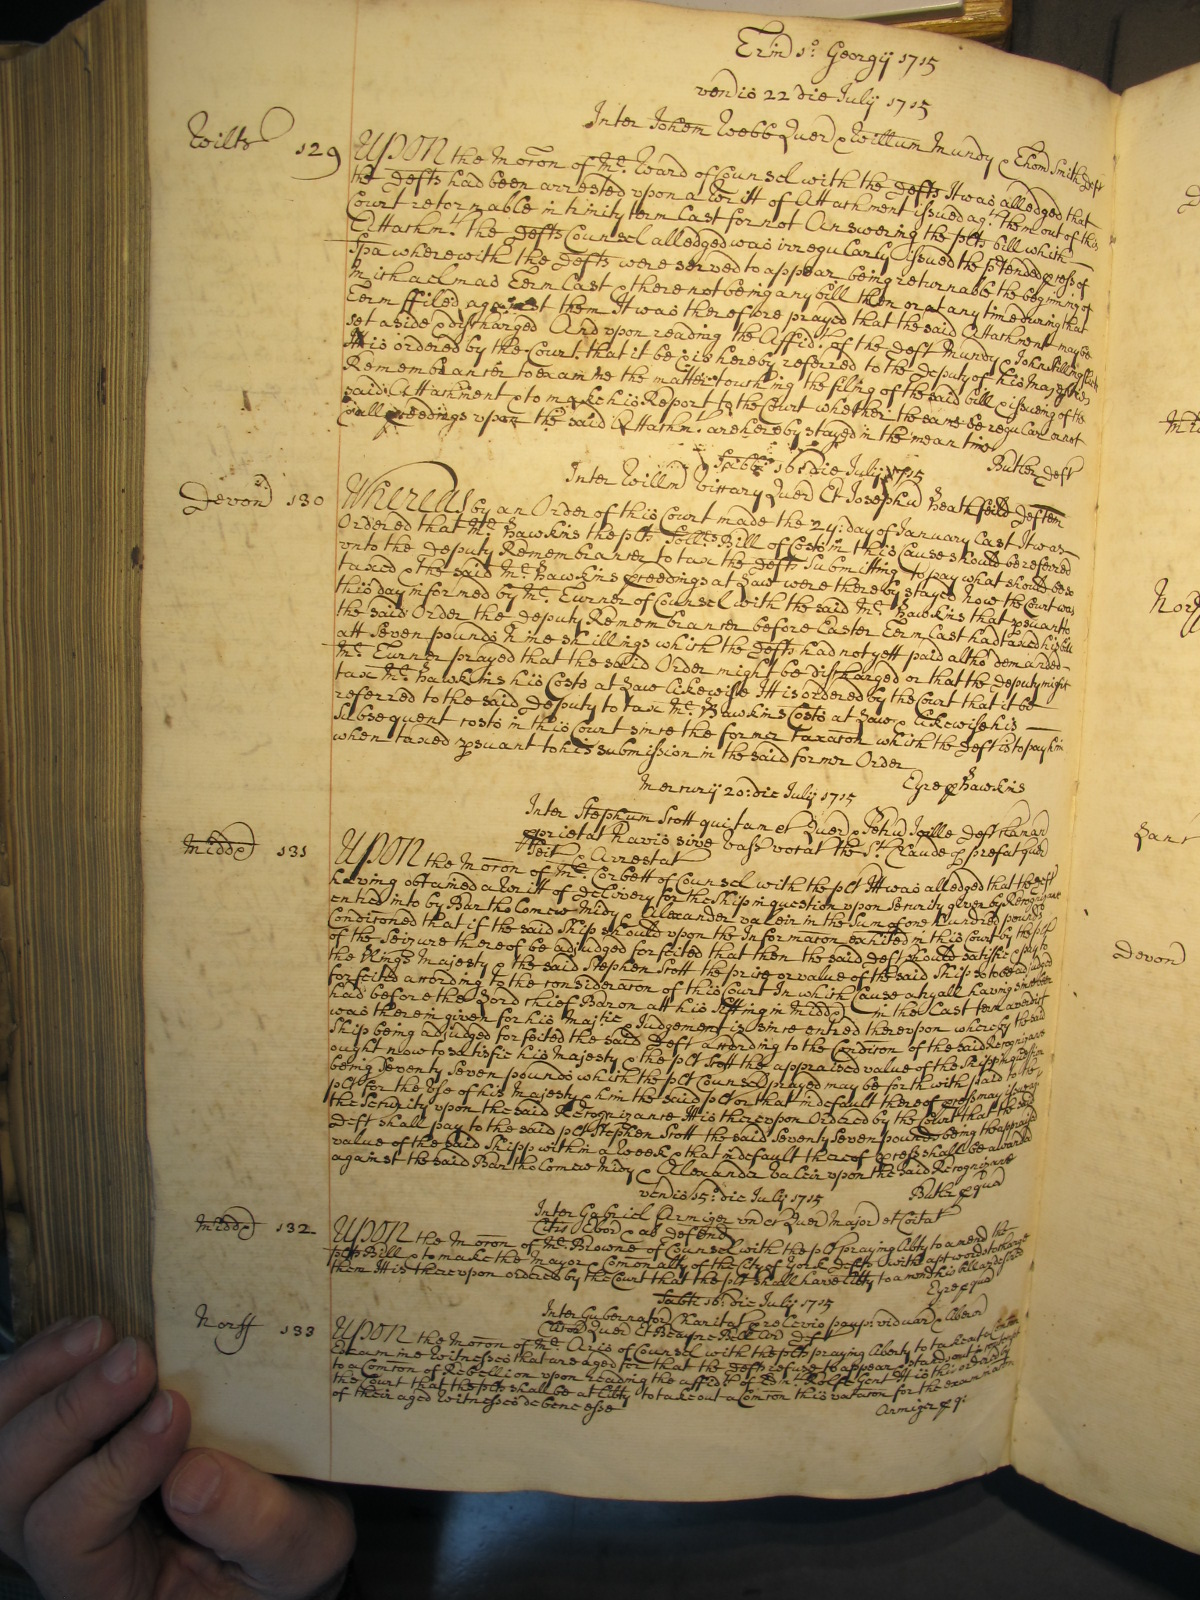 Trin 1º. Georgij 1715
venis 22 die July 1715
Inter Johem Webb Quer & Willum Mundy & Thom Smith Deft
Wilts 129 UPON the Moc͠on of Mr. Ward of Counsel with the Defts It was alledged that
the Defts had been arrested upon a Writt of Attachment issued agt. them out of this
Court retornable in trinity term Last for not Answering the plts bill which
Attachmt. the Defts Counsel alledged was irregularly issued the p̄tended p̱cess of
Spa wherewith the Defts were served to appear being returnable the beginning of
Michaelmas Term Last & there not being any bill then or at any time during that
Term ffiled against them It was therefore prayed that the said Attachment may be
set aside & discharged And upon reading the Affidt. of the Deft Mundy & John
It is ordered by the Court that it be & is hereby referred to the Deputy of his Majesties
Remembrancer to examine the matter touching the filing of the said bill & issueing of the
said Attachment & to make his Report to the Court whether the same be regular or not
& all p̱ceedings upon the said Attachmt. are hereby stayed in the mean time
Butler Deft
Sabbti 16º die July 1715
Inter Willm Vittary Quer Et Josephu Heathfeild Deften
Devon 130 Whereas by an Order of this Court made the 24: day of January Last It was
Ordered that Mr. Hawkins the plts Sollrs Bill of Costs in this Cause should be referred
unto the Deputy Remembrancer to tax the Defts Submitting to pay what should be so
taxed & the said Mr. Hawkins p̱ceedings at Law were thereby stayed Now the Court was
this day informed by Mr. Turner of Counsel with the said Mr. Hawkins that p̱suant to
the said Order the Deputy Remembrancer before Easter Term Last had taxed his bill
att Seven pounds Nine shillings which the Defts had not yett paid altho demanded
Mr. Turner prayed that the said Order might be discharged or that the Deputy might
tax Mr. Hawkins his Costs at Law likewise Itt is ordered by the Court that it be
referred to the said Deputy to tax Mr. Hawkins Costs at Law & likewise his
subsequent costs in this Court since the former Taxac͠on which the Deft is to pay him
when taxed p̱suant to his submission in the said former Order
Eyre p̱ Hawkins
Mercurij 20: die July 1715
Inter Stephum Scott qui tam et Quer & Petru Deft
p̱prietar Navis sive vass vocat the St. Claude p̱ prefat Quer
Seit & Arrestat
Middx 131 UPON the Moc͠on of Mr. Corbett of Counsel with the plt Itt was alledged that the Deft
having obtained a Writt of Delivery for the Ship in question upon Security given by Recognizance
entred into by Bartholomew Midy & Alexander Valeir in the Sum of one hundred pounds
Conditioned that if the said Ship should upon the Informac͠on exhited in this Court by the plt
of the Seizure thereof be adjudged forfeited that then the said Deft should satisfie & pay to
the Kings Majesty & the said Stephen Scott the price or value of the said Ship so to be adjudged
forfeited according to the considerac͠on of this Court In which Cause a tryall having since been
had before the Lord chief Baron att his Sitting in Middx in the Last term a verdict
was therein given for his Majtie & Judgement is since entred thereupon whereby the said
Ship being adjudged forfeited the said Deft according to the Condic͠on of the said Recognizance
ought now to satisfie his Majesty & the plt Scott the appraised value of the Shipp in question
being Seventy Seven pounds which the plts Counsel prayed may be forthwith paid to the
plt for the Use of his Majesty & him the said plt or that in default thereof p̱cess may issue
the Security upon the said Recognizance Itt is thereupon Ordered by the Court that the said
Deft shall pay to the said plt Stephen Scott the said Seventy Seven pounds being the appraised
value of the said Shipp within a Week & that in default thereof p̱cess shall be awarded
against the said Bartholomew Midy & Alexander Valeir upon the said Recognizance
Butler p̱ quer
venis 15º. die July 1715
Inter Gabriel Armiger un et Quer Major et Coitat
Citis Ebor & al Defend
Middx 132 UPON the Moc͠on of Mr. Browne of Counsel with the plt praying Libty to amend the
plts Bill & to make the Mayor & Comonalty of the City of York Defts with apt words to charge
them Itt is thereupon ordered by the Court that the plt shall have libty to amend his bill as desired
Eyre p̱ quer
Sabti 16: die July 1715
Inter Gubernator Charitat pro Levio paup: viduar & liberor
Quer Et Beayne Bell Deft
Norff 133 UPON the Moc͠on of Mr. Axis of Counsel with the plts praying liberty to take a
Examine Witnesses that are aged for that the Defts refuse to appear & stand out in contempt
to a Com͠ion of Rebellion upon reading the affidt of Rolfe Gent Itt is this ordered by
the Court that the plts shall be at Libty to take out a Com͠ion this vacac͠on for the examinac͠on
of their aged Witnesses de bene esse
Armiger p̱ q:
Devon